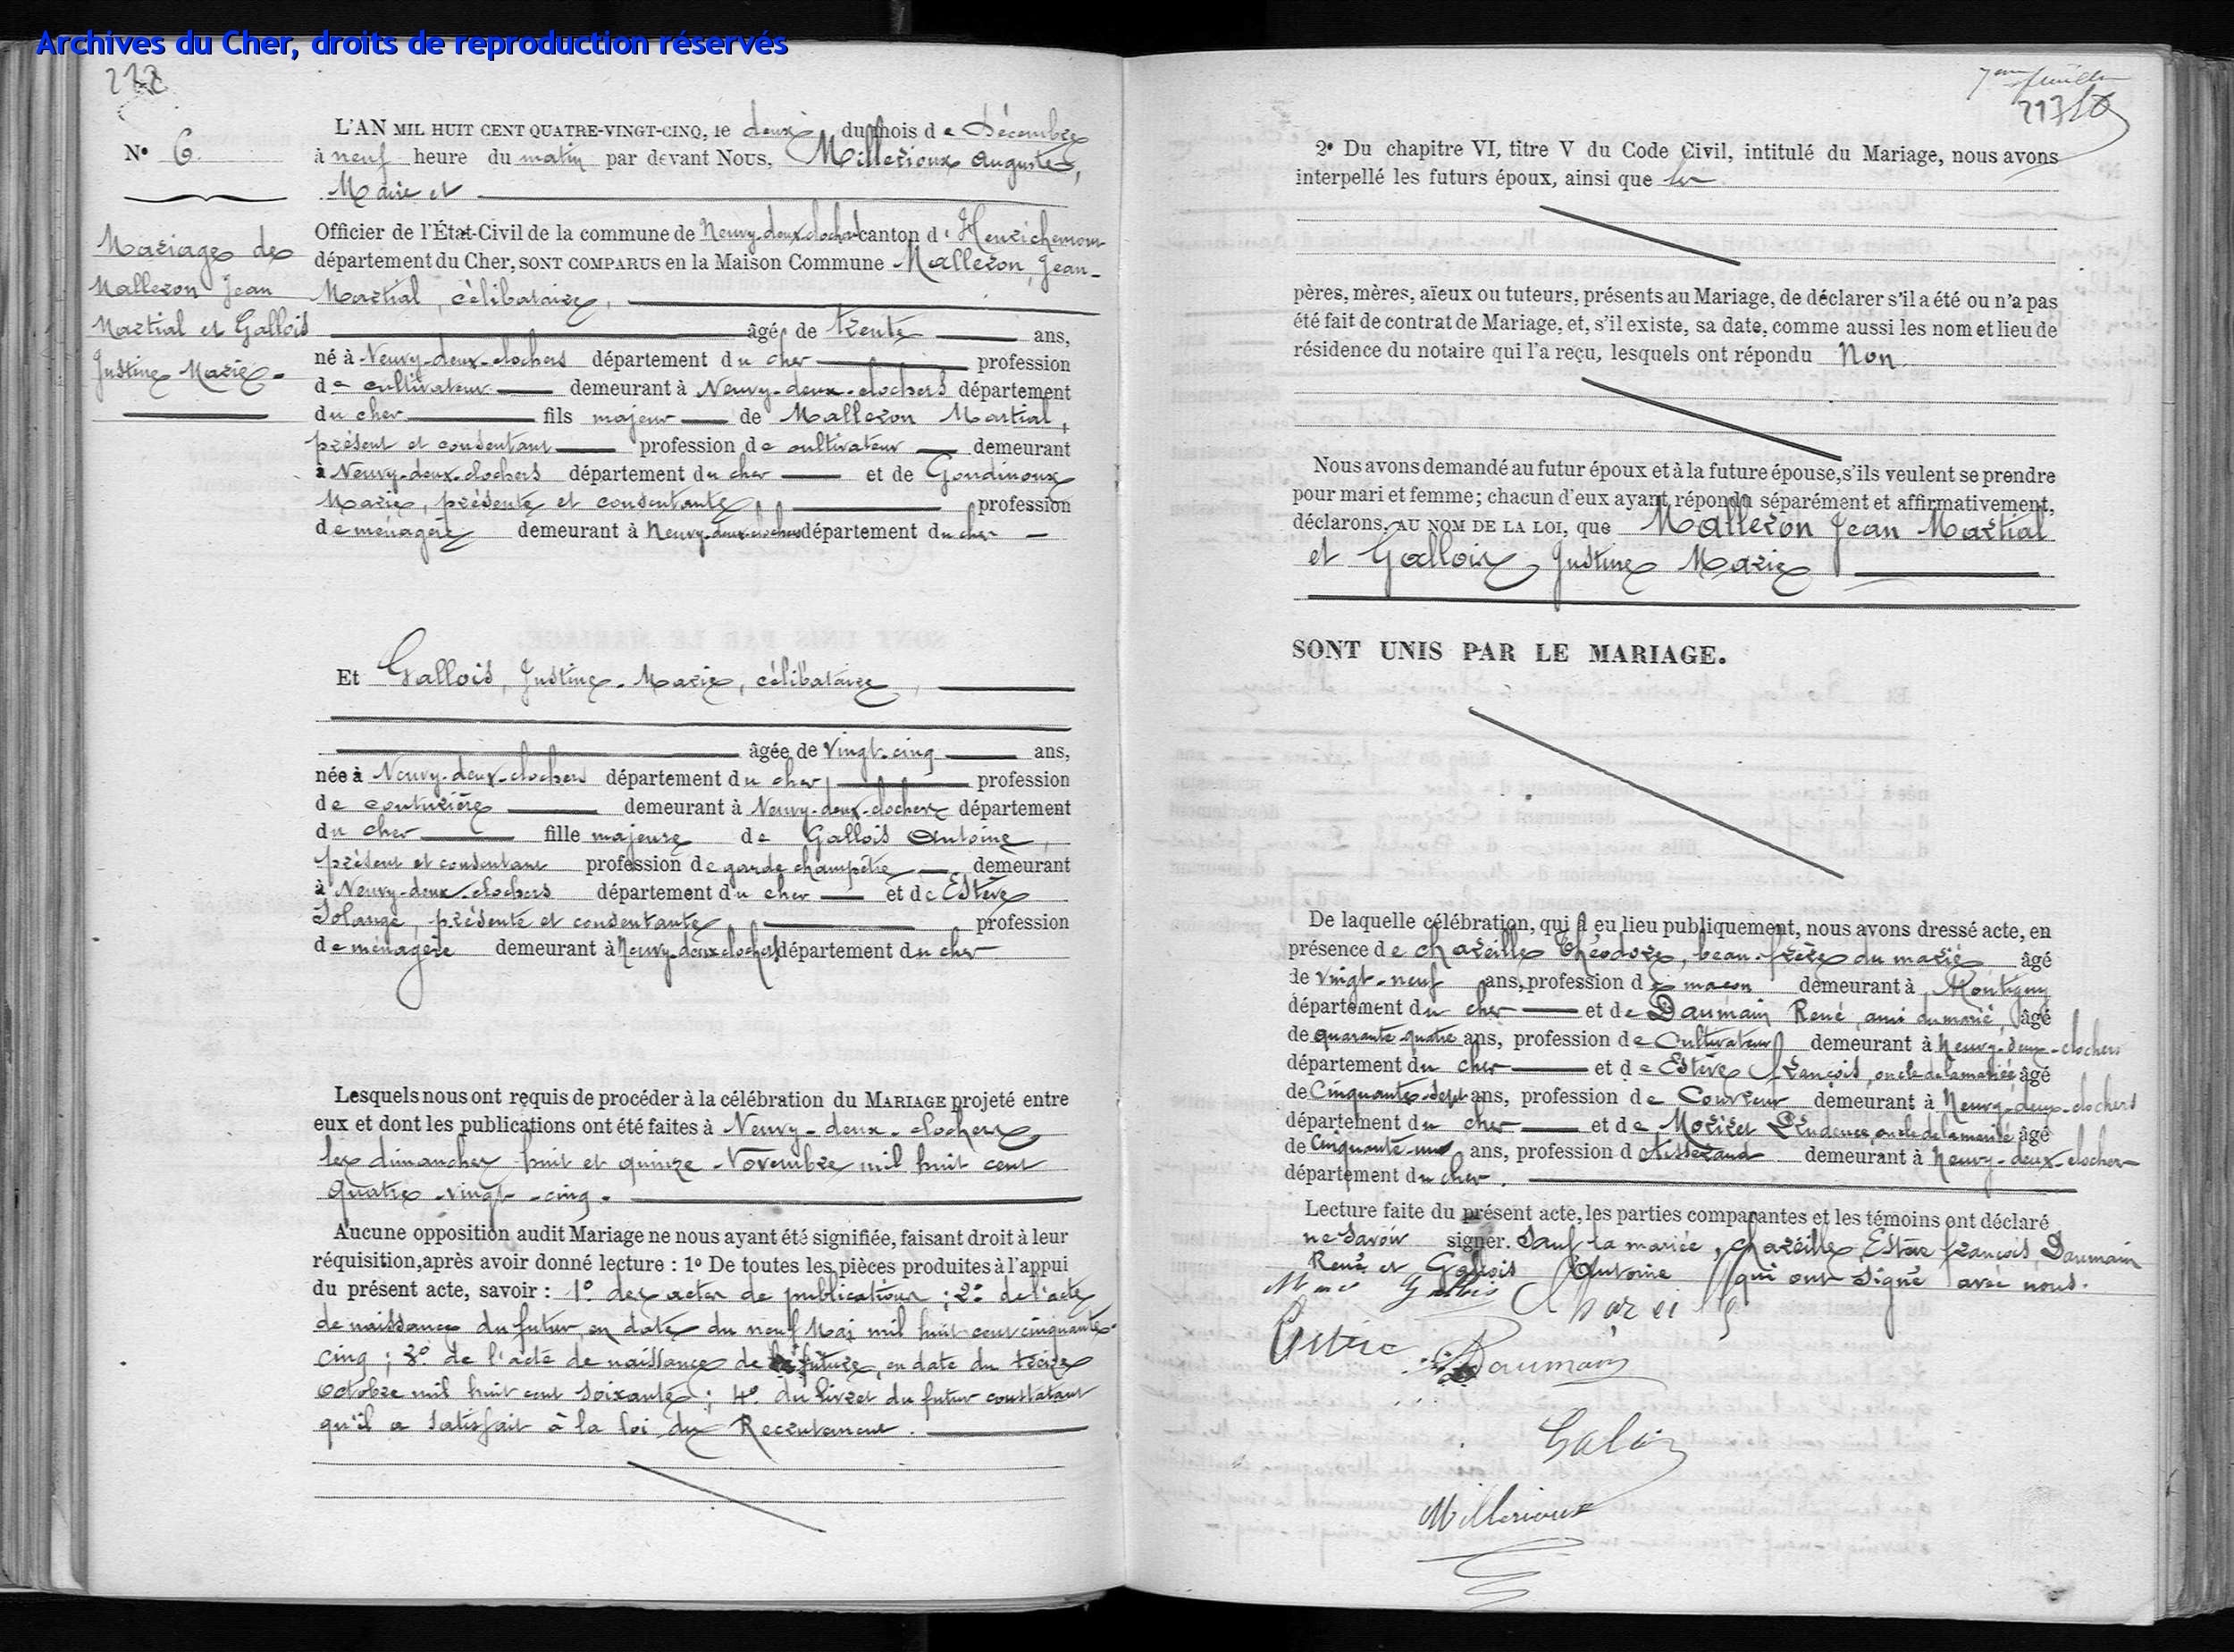 Archives du Cher, droits de reproduction réservés
N° 6.
Mariage de
Malleron Jean
Martial et Gallois
Justine Marie.
L'AN MIL HUIT CENT QUATRE-VINGT-CINQ, le deux du mois de Décembre
à neuf heure du matin par devant Nous, Millerioux Auguste,
Maire et
Officier de l'État-Civil de la commune de Neuvy-deux-clochers canton d' Henrichemont
département du Cher, SONT COMPARUS en la Maison Commune Malleron, Jean-
Martial, célibataire,
âgé de trente ans,
né à Neuvy-deux-clochers département du cher profession
de cultivateur demeurant à Neuvy-deux-clochers département
du cher fils majeur de Malleron Martial,
présent et consentant profession de cultivateur demeurant
à Neuvy-deux-clochers département du cher et de Gondinoux
Marie, présente et consentante, profession
de ménagère demeurant à Neuvy-deux-clochers département du cher
Et Gallois, Justine-Marie, célibataire,
âgée de vingt-cinq ans,
née à Neuvy-deux-clochers département du cher profession
de couturière demeurant à Neuvy-deux-clochers département
du cher fille majeure de Gallois Antoine,
présent et consentant profession de garde champêtre demeurant
à Neuvy-deux-clochers département du cher et de Estève
Solange, présente et consentante, profession
de ménagère demeurant à Neuvy-deux-clochers département du cher
Lesquels nous ont requis de procéder à la célébration du MARIAGE projeté entre
eux et dont les publications ont été faites à Neuvy-deux-clochers
les dimanches huit et quinze Novembre mil huit cent
quatre-vingt-cinq.
Aucune opposition audit Mariage ne nous ayant été signifiée, faisant droit à leur
réquisition, après avoir donné lecture : 1° De toutes les pièces produites à l'appui
du présent acte, savoir : 1° des actes de publications ; 2° de l'acte
de naissance du futur, en date du neuf Mai mil huit cent cinquante-
cinq ; 3° de l'acte de naissance de la future, en date du treize
octobre mil huit cent soixante ; 4° du livret du futur constatant
qu'il a satisfait à la loi du Recrutement.
7eme feuillet
213
2° Du chapitre VI, titre V du Code Civil, intitulé du Mariage, nous avons
interpellé les futurs époux, ainsi que les
pères, mères, aïeux ou tuteurs, présents au Mariage, de déclarer s'il a été ou n'a pas
été fait de contrat de Mariage, et, s'il existe, sa date, comme aussi les nom et lieu de
résidence du notaire qui l'a reçu, lesquels ont répondu Non.
Nous avons demandé au futur époux et à la future épouse, s'ils veulent se prendre
pour mari et femme ; chacun d'eux ayant répondu séparément et affirmativement,
déclarons, AU NOM DE LA LOI, que Malleron Jean Martial
et Gallois, Justine Marie
SONT UNIS PAR LE MARIAGE.
De laquelle célébration, qui a eu lieu publiquement, nous avons dressé acte, en
présence de Chareille Théodore, beau-frère du marié âgé
de vingt-neuf ans, profession de maçon demeurant à Montigny
département du cher et de Daumain René, ami du marié, âgé
de quarante-quatre ans, profession de Cultivateur demeurant à Neuvy-deux-clochers
département du cher et de Estève François, oncle de la mariée, âgé
de Cinquante-sept ans, profession de Couvreur demeurant à Neuvy-deux-clochers
département du cher et de Morizet Prudence, oncle de la mariée, âgé
de Cinquante-un ans, profession de tisserand demeurant à Neuvy-deux-clochers
département du cher.
Lecture faite du présent acte, les parties comparantes et les témoins ont déclaré
ne savoir signer. Sauf la mariée, Chareille, Estève François, Daumain
René et Gallois Antoine qui ont signé avec nous.
Chareille
Daumain
Galois
Millerioux